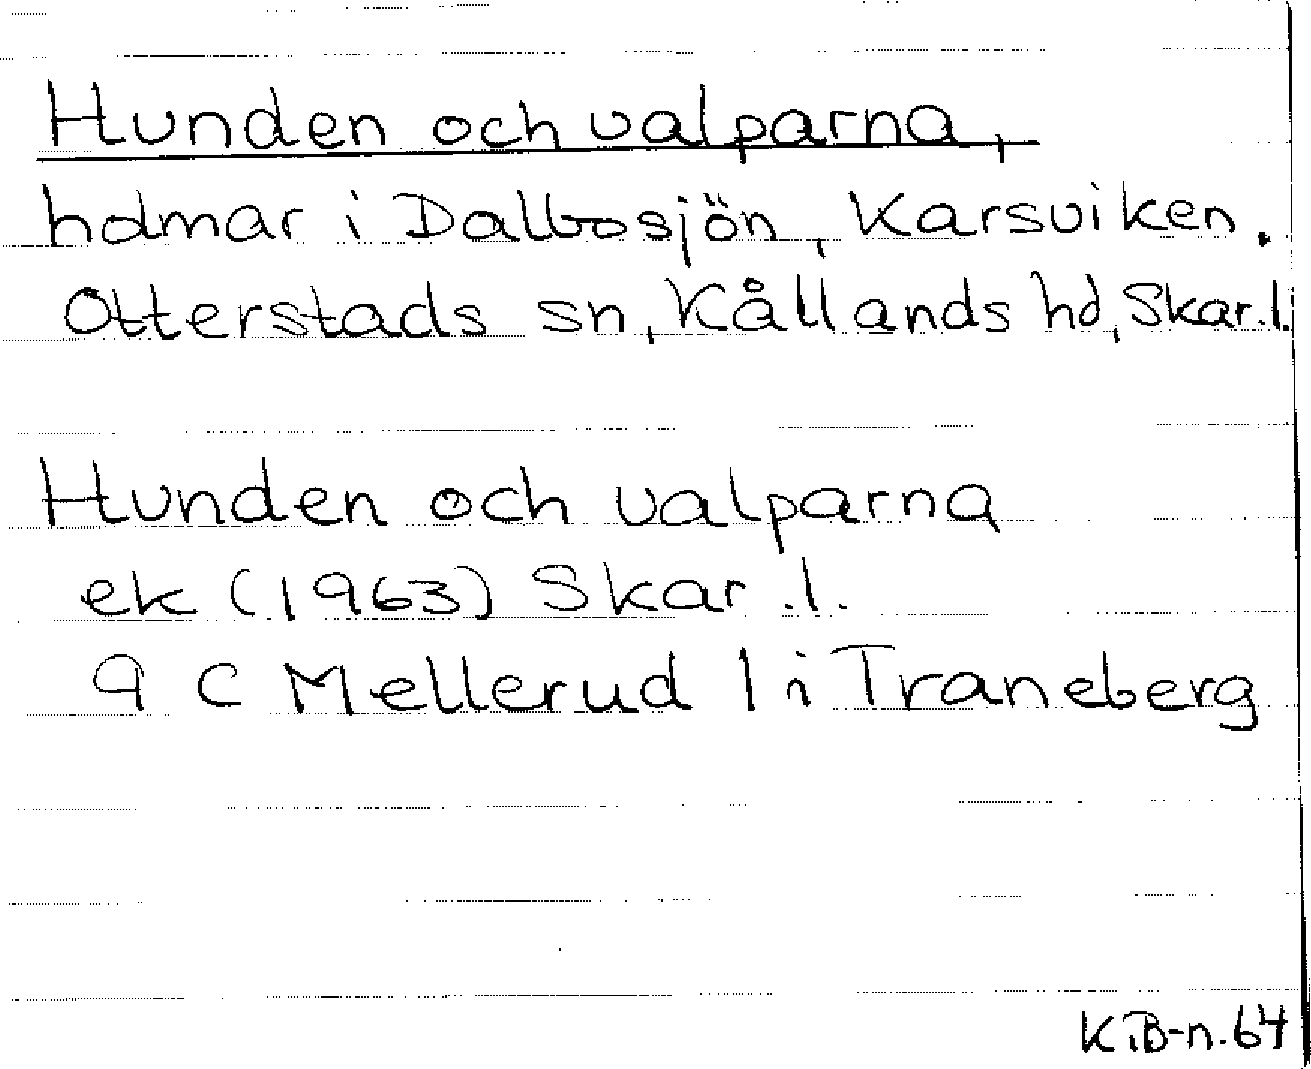 Hunden och valparna,
hdmar i Dalbosjön, Karsviken.
Otterstads sn, Kållands hd, Skar.l.
Hunden och valparna
ek (1963) Skar.l.
9 C Mellerud 1 i Traneberg
KiB-n.64